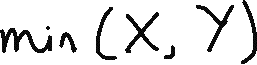 min(X, Y)